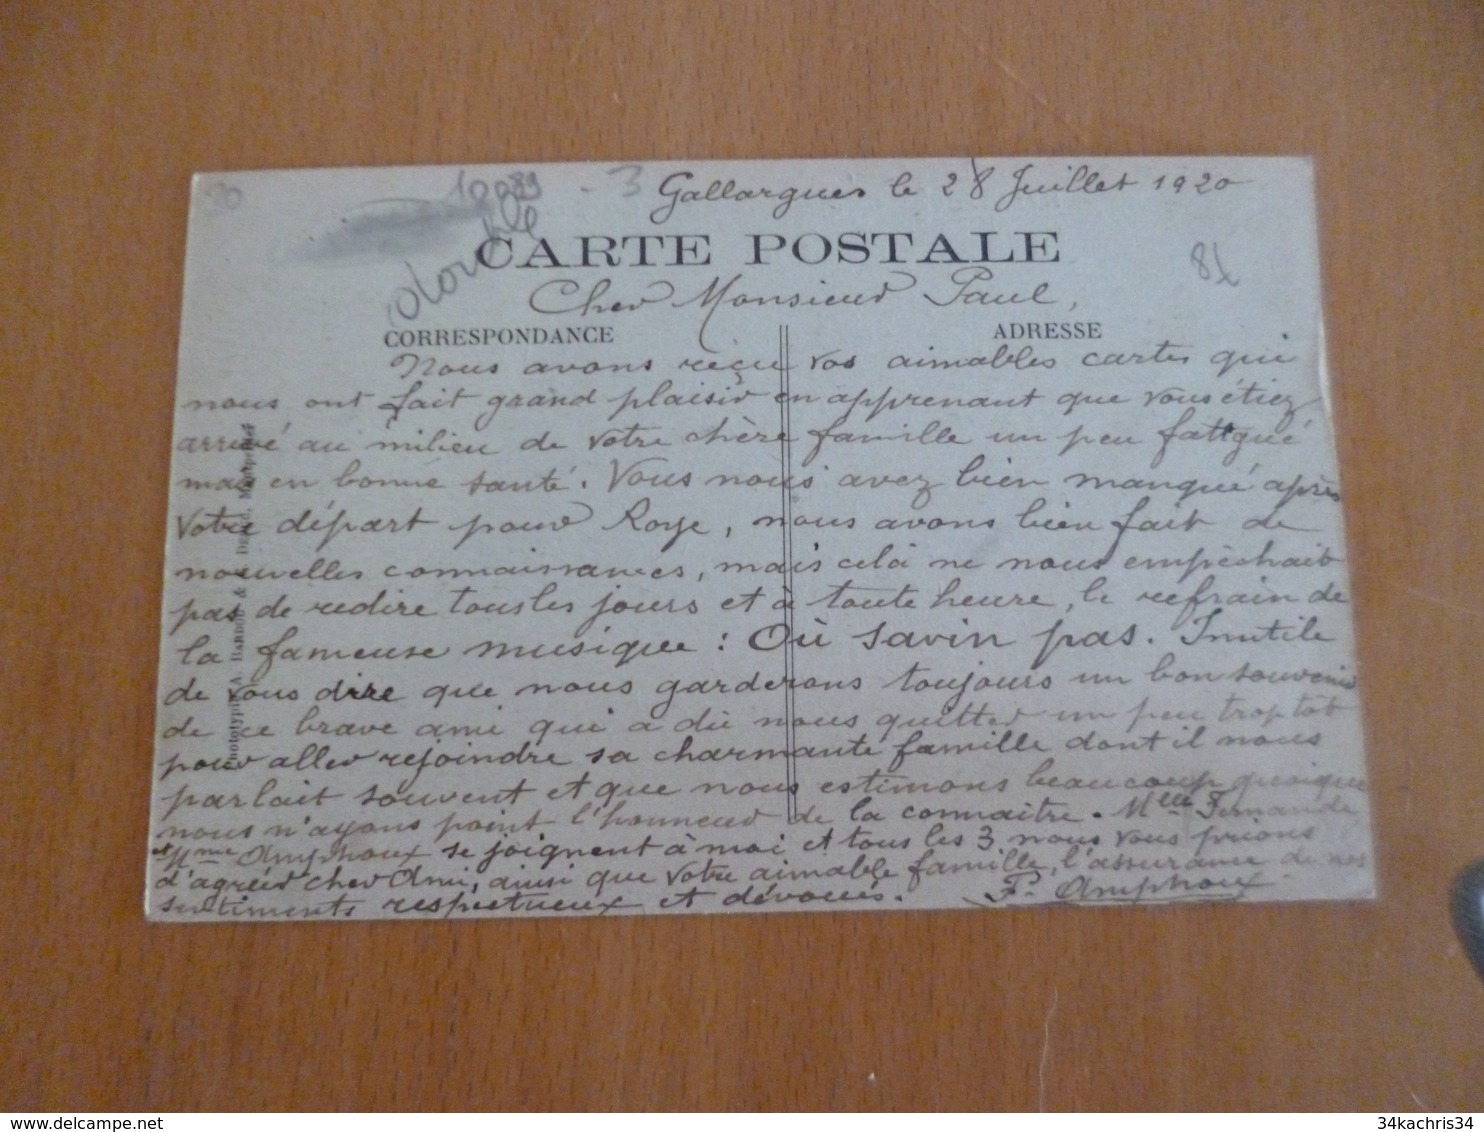 30
10089
- 3
Gallargues le 28 Juillet 1920
CARTE POSTALE
81
Cher Monsieur Paul,
CORRESPONDANCE
ADRESSE
Nous avons reçu vos aimables cartes qui
nous ont fait grand plaisir en apprenant que vous étiez
arrivé au milieu de votre chère famille un peu fatigué
mais en bonne santé. Vous nous avez bien manqué après
votre départ pour Roye, nous avons bien fait de
nouvelles connaissances, mais celà ne nous empêchait
pas de redire tous les jours et à toute heure, le refrain de
la fameuse musique : Où savin pas. Inutile
de vous dire que nous garderons toujours un bon souvenir
de ce brave ami qui a dû nous quitter un peu trop tot
pour aller rejoindre sa charmante famille dont il nous
parlait souvent et que nous estimons beaucoup quoique
nous n'ayons point l'honneur de la connaitre. Mlle Fernande
et Mme Amphoux se joignent à moi et tous les 3 nous vous prions
d'agréer cher Ami, ainsi que votre aimable famille, l'assurance de nos
sentiments respectueux et dévoués. F. Amphoux
Phototypie A. BARDOU &
34kachris34